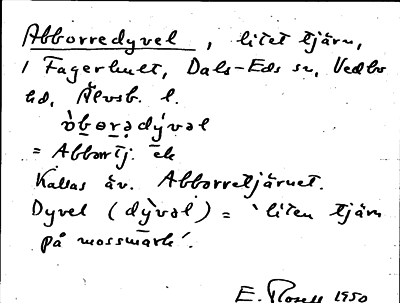 Abborredyvel, litet tjärn,
i Fagerhult, Dals-Eds sn, Vedbo
hd, Älvsb. l.
òbərədývəl
= Abbortj. ek
Kallas äv. Abborretjärnet.
Dyvel (dỳvəl) = 'liten tjärn
på mossmark'.
E. 1950